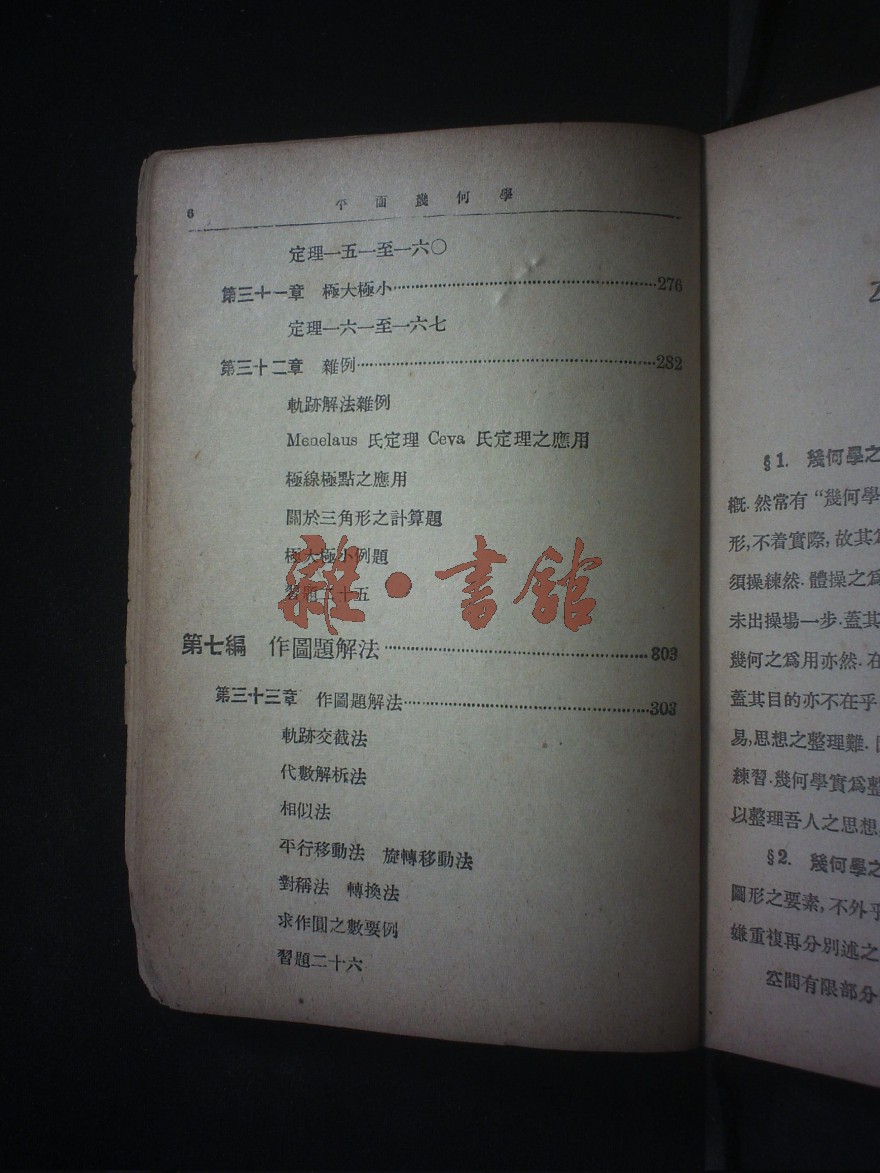 6 平面幾何學
定理一五一至一六〇
第三十一章 極大極小……276
定理一六一至一六七
第三十二章 雜例……282
軌跡解法雜例
Menelaus 氏定理 Ceva 氏定理之應用
極線極點之應用
關於三角形之計算題
極大極小例題
習題二十五
雜·書館
第七編 作圖題解法……303
第三十三章 作圖題解法……303
軌跡交截法
代數解析法
相似法
平行移動法 旋轉移動法
對稱法 轉換法
求作圓之數要例
習題二十六
§1. 幾何學之
概. 然常有 “幾何學
形, 不着實際, 故其
須操練然. 體操之爲
未出操場一步. 蓋其
幾何之爲用亦然. 在
蓋其目的亦不在乎
易, 思想之整理難.
練習. 幾何學實爲整
以整理吾人之思想.
§2. 幾何學之
圖形之要素, 不外乎
嫌重複再分別述之
空間有限部分